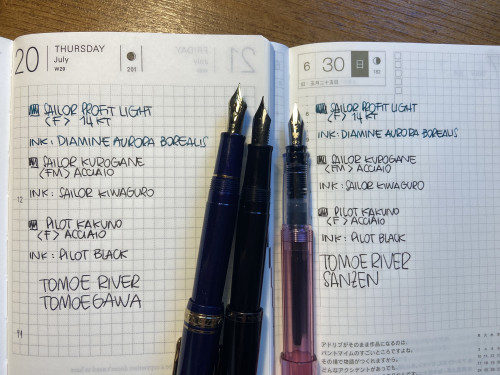 20
THURSDAY
July
W29
201
SAILOR PROFIT LIGHT
<F> 14KT
INK: DIAMINE AURORA BOREALIS
SAILOR KUROGANE
<FM> ACCIAIO
12
INK: SAILOR KIWAGURO
PILOT KAKUNO
<F> ACCIAIO
INK: PILOT BLACK
TOMOE RIVER
TOMOEGAWA
6
30
日
SAILOR PROFIT LIGHT
<F> 14KT
INK: DIAMINE AURORA BOREALIS
SAILOR KUROGANE
<FM> ACCIAIO
INK: SAILOR KIWAGURO
PILOT KAKUNO
<F> ACCIAIO
INK: PILOT BLACK
TOMOE RIVER
SANZEN
アドリブがそのまま作品になるのは、
パントマイムのすごいところですよね。
その場で物語がつくれますから。
どんなアクシデントがあっても、